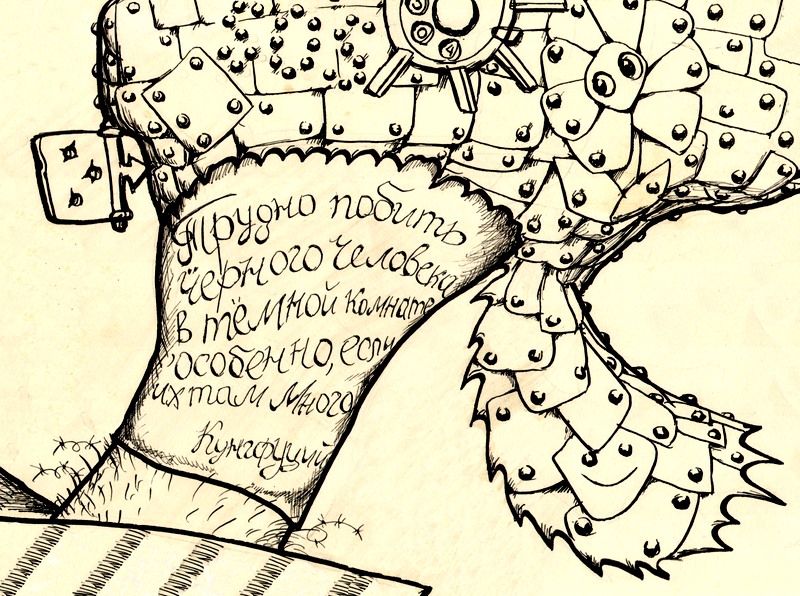 Трудно побить
чёрного человека
в тёмной комнате
особенно, если
их там много
Кунгфуций